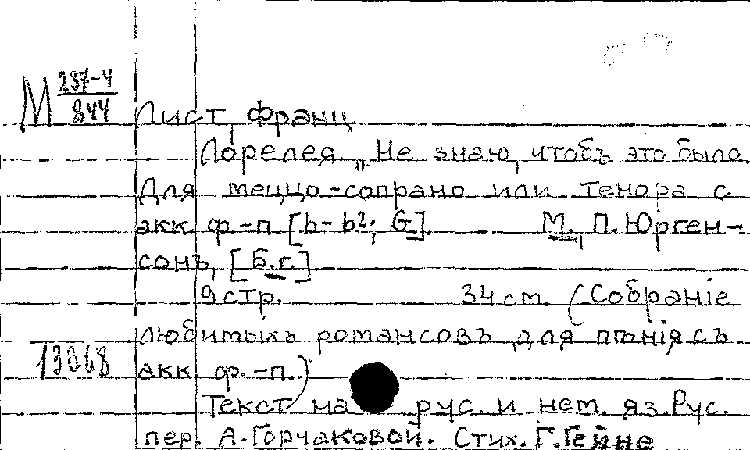 М 237-4
844
Лист, Франц
Лорелея „Не знаю, чтобъ это было
Для меццо-сопрано или тенора с
акк. ф.-п. [h-b²; G]. М., П. Юрген-
сонъ, [Б.г.]
9 стр. 34 см. (Собраніе
любимыхъ романсовъ для пѣнія съ
13068
акк. ф.-п.)
Текст на рус. и нем. яз. Рус.
пер. А. Горчаковой. Стих. Г. Гейне